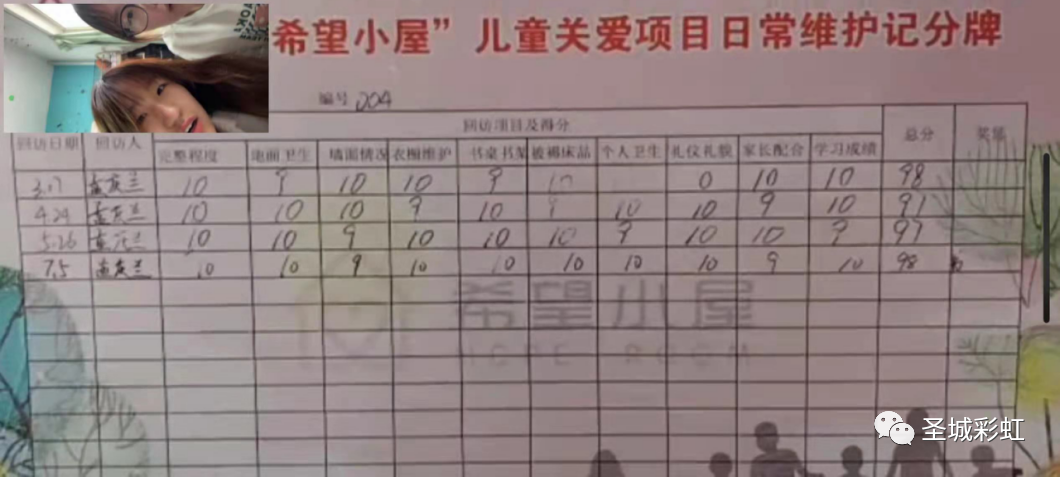 希望小屋”儿童关爱项目日常维护记分牌
编号 004
回访日期 回访人 回访项目及得分 总分 奖惩
完整程度 地面卫生 墙面情况 衣橱维护 书桌书架 被褥床品 个人卫生 礼仪礼貌 家长配合 学习成绩
3.17 10 9 10 10 9 10 0 10 10 98
4.24 10 10 10 9 10 9 10 10 9 10 91
5.26 10 10 9 10 10 10 9 10 10 9 97
7.5 10 10 9 10 10 10 10 10 9 10 98
希望小屋
HOPE ROOM
圣城彩虹